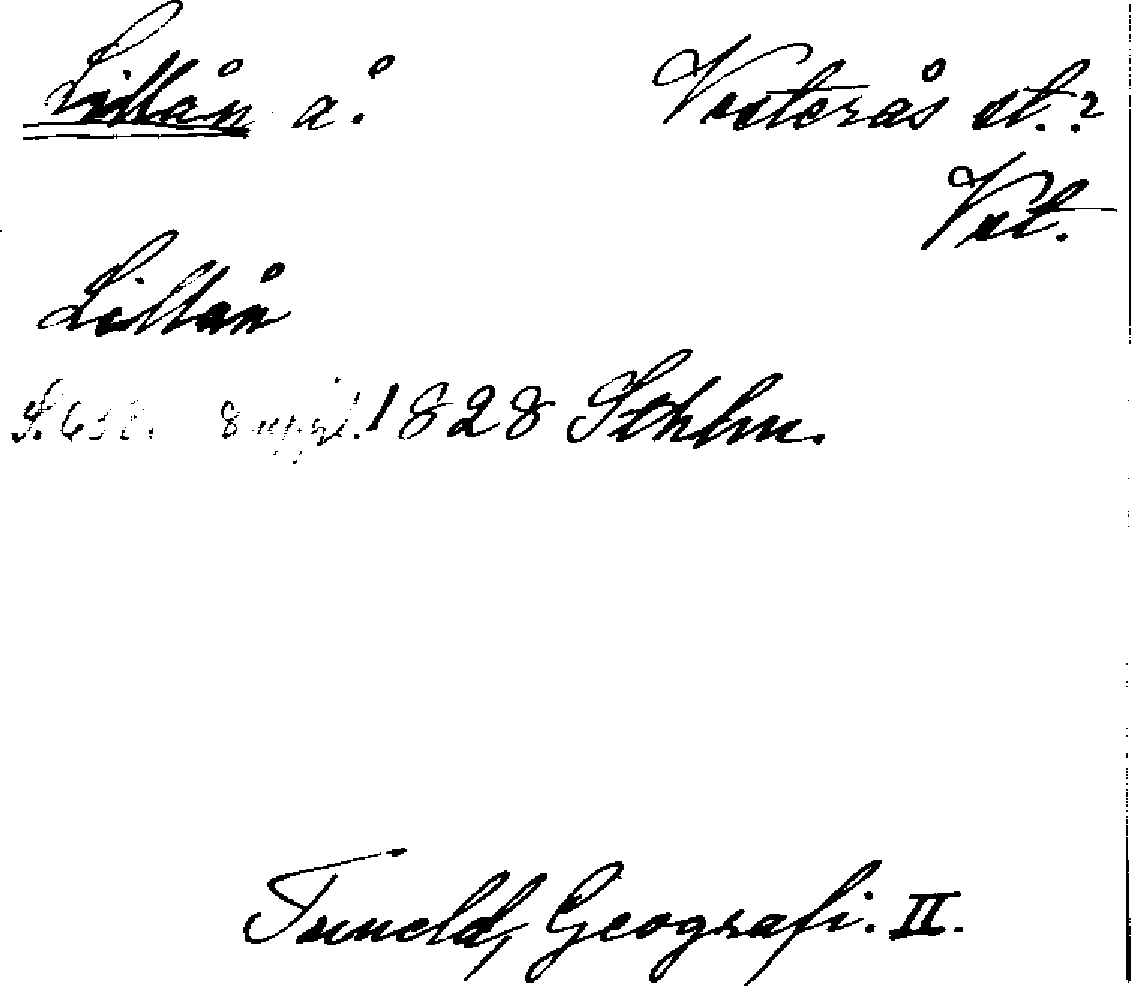 Lillån å. Vesterås st.?
Vst.
Lillån
S. 638. 8 uppl. 1828 Sthlm.
Tuneld, Geografi. II.